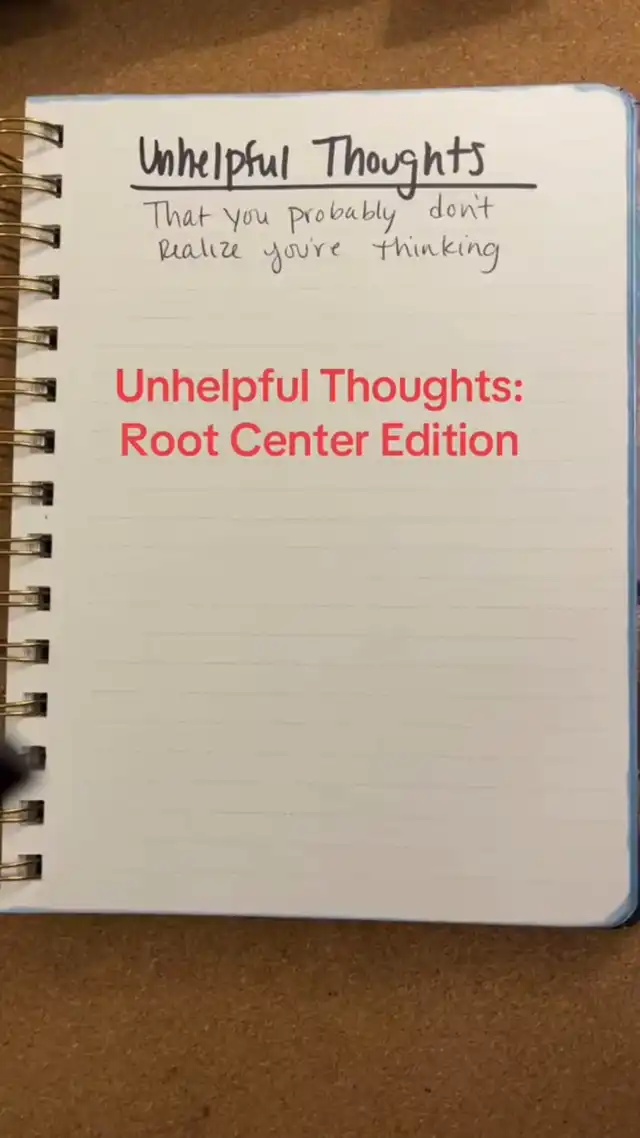 Unhelpful Thoughts
That you probably don't
Realize you're thinking
Unhelpful Thoughts:
Root Center Edition